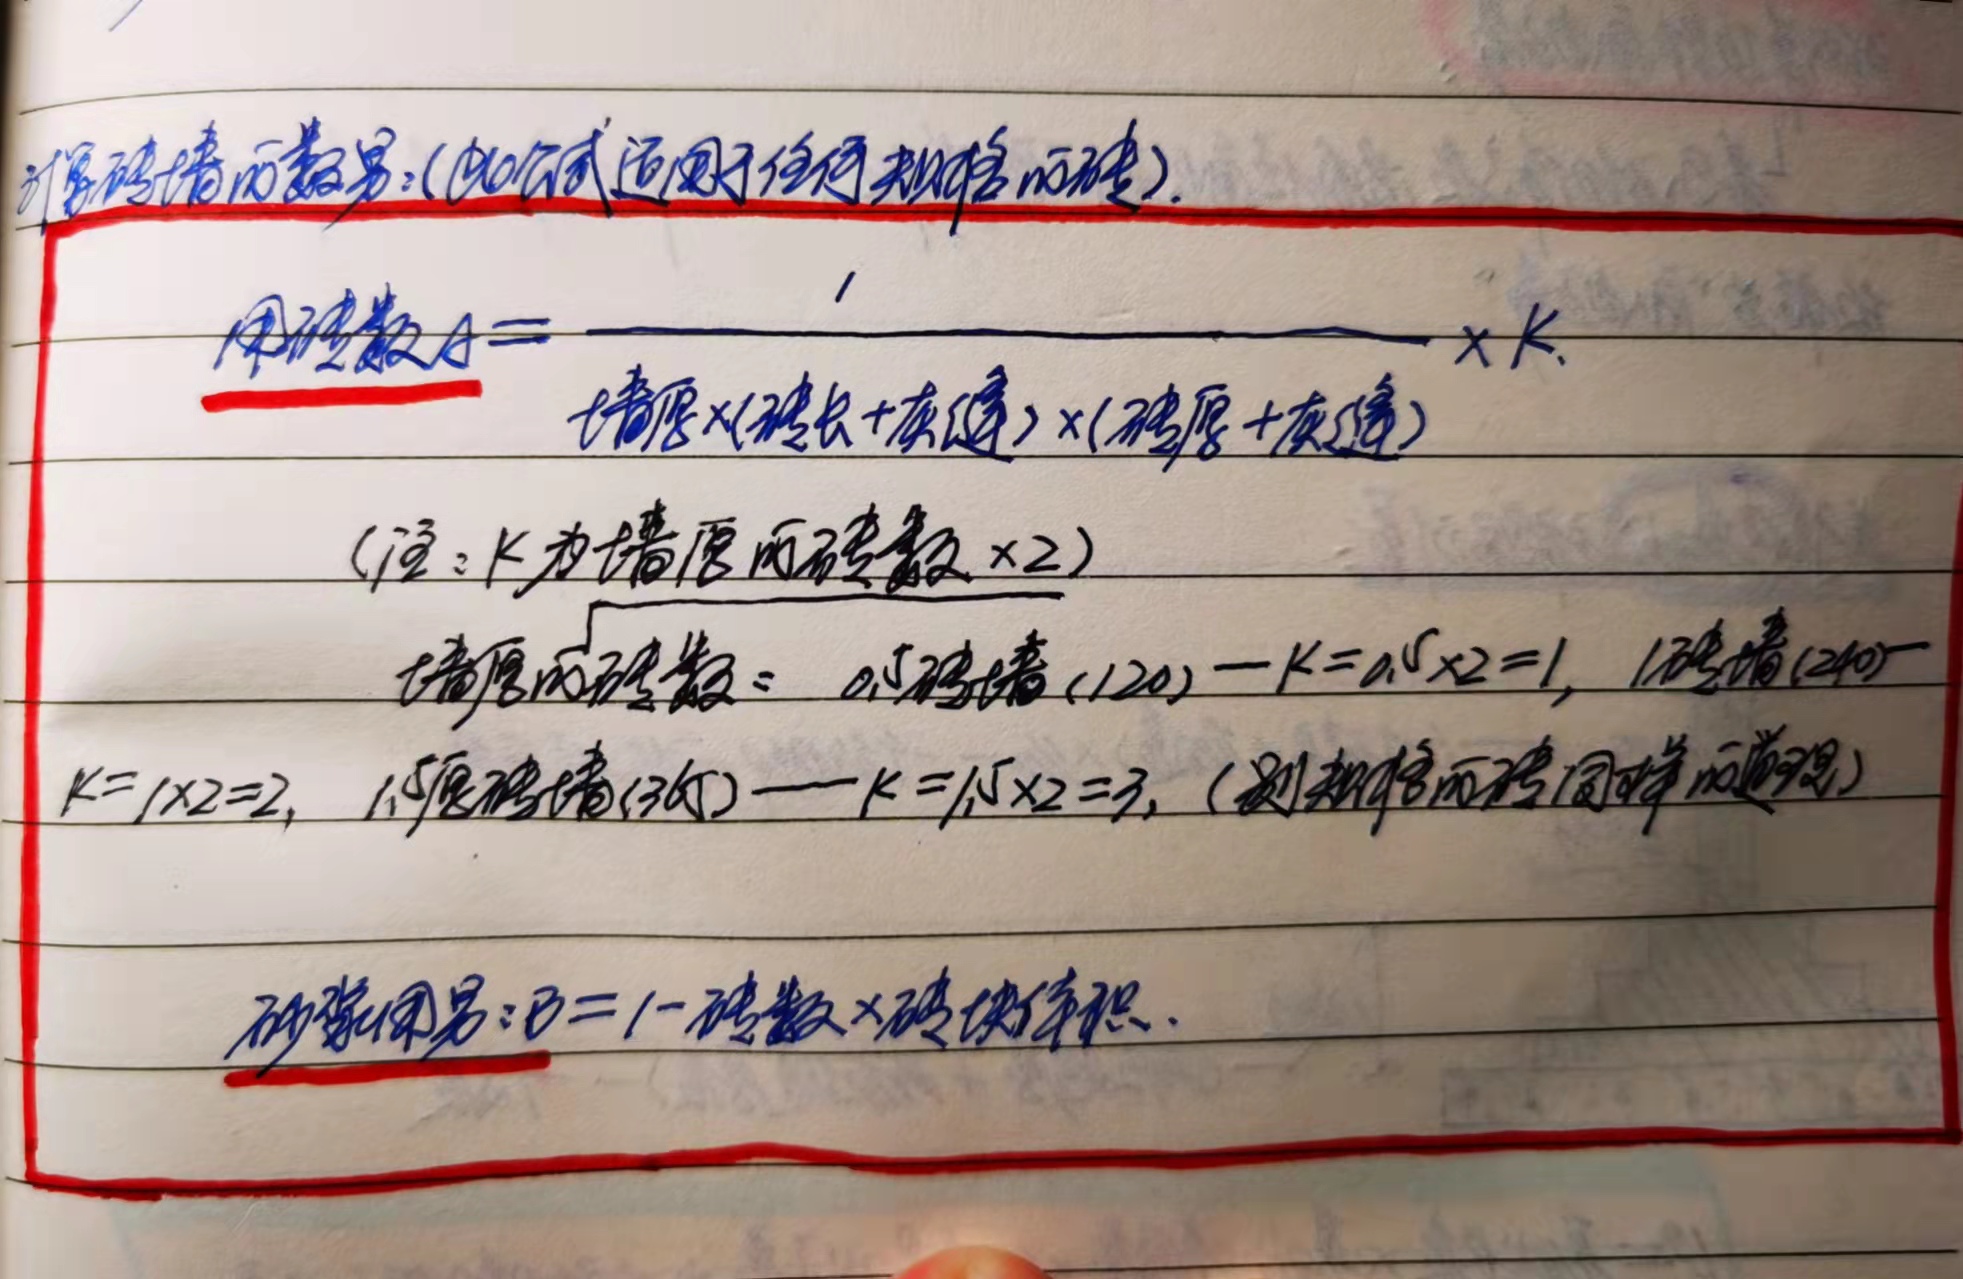 计算砖墙的数量:(此公式适用于任何规格的砖).
用砖数A = 1 / 墙厚×(砖长+灰缝)×(砖厚+灰缝) × K.
(注:K为墙厚的砖数×2)
墙厚的砖数: 0.5砖墙(120) — K=0.5×2=1, 1砖墙(240)—
K=1×2=2, 1.5厚砖墙(365) — K=1.5×2=3, (别规格的砖同样的道理)
砂浆用量:B=1-砖数×砖块体积.